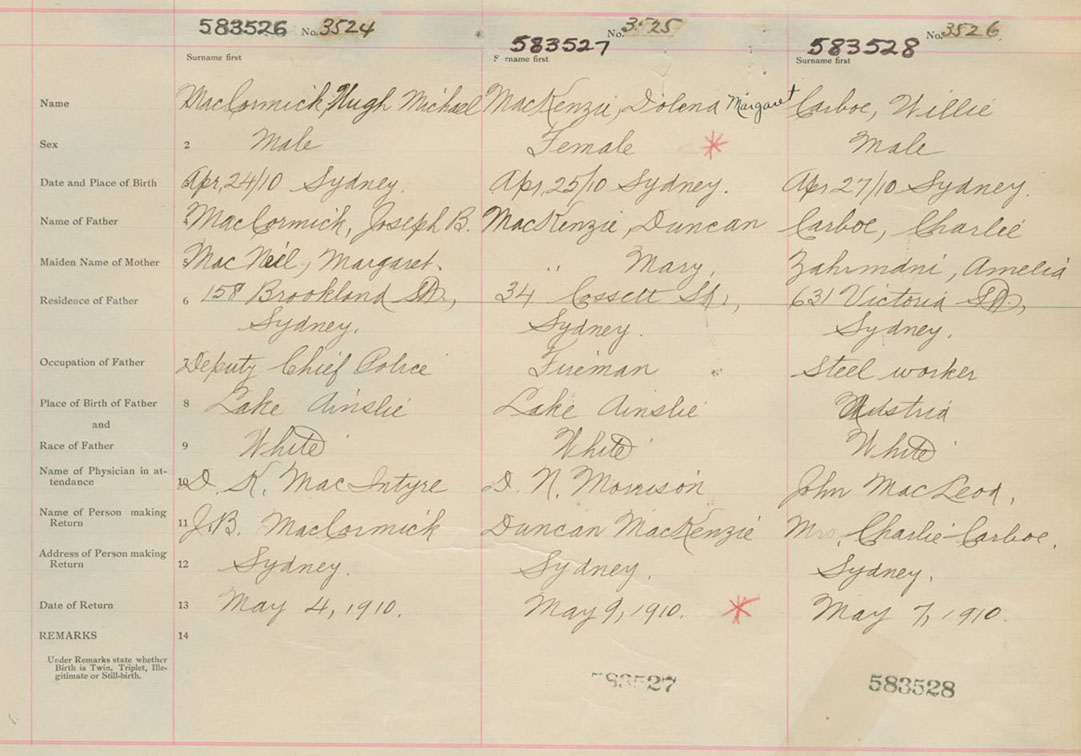 583526 No. 3524
583527 No. 3525
583528 No. 3526
Surname first
Surname first
Surname first
Name MacCormick, Hugh Michael MacKenzie, Dolena Margaret Carboe, Willie
Sex 2 Male Female * Male
Date and Place of Birth Apr, 24/10 Sydney. Apr, 25/10 Sydney. Apr 27/10 Sydney.
Name of Father 4 MacCormick, Joseph B. MacKenzie, Duncan Carboe, Charlie
Maiden Name of Mother 5 MacNeil, Margaret. " Mary, Amelia
Residence of Father 6 158 Brookland St, 34 Cossett St, 631 Victoria St,
Sydney. Sydney. Sydney.
Occupation of Father 7 Deputy Chief Police Fireman Steel worker
Place of Birth of Father 8 Lake Ainslie Lake Ainslie Austria
and
Race of Father 9 White White White
Name of Physician in at-
tendance 10 D. K. MacIntyre D. N. Morrison John MacLeod,
Name of Person making
Return 11 J.B. MacCormick Duncan MacKenzie Mrs. Charlie Carboe.
Address of Person making
Return 12 Sydney. Sydney. Sydney.
Date of Return 13 May 4, 1910. May 9, 1910. * May 7, 1910.
REMARKS 14
Under Remarks state whether
Birth is Twin, Triplet, Ille-
gitimate or Still-birth.
583527 583528